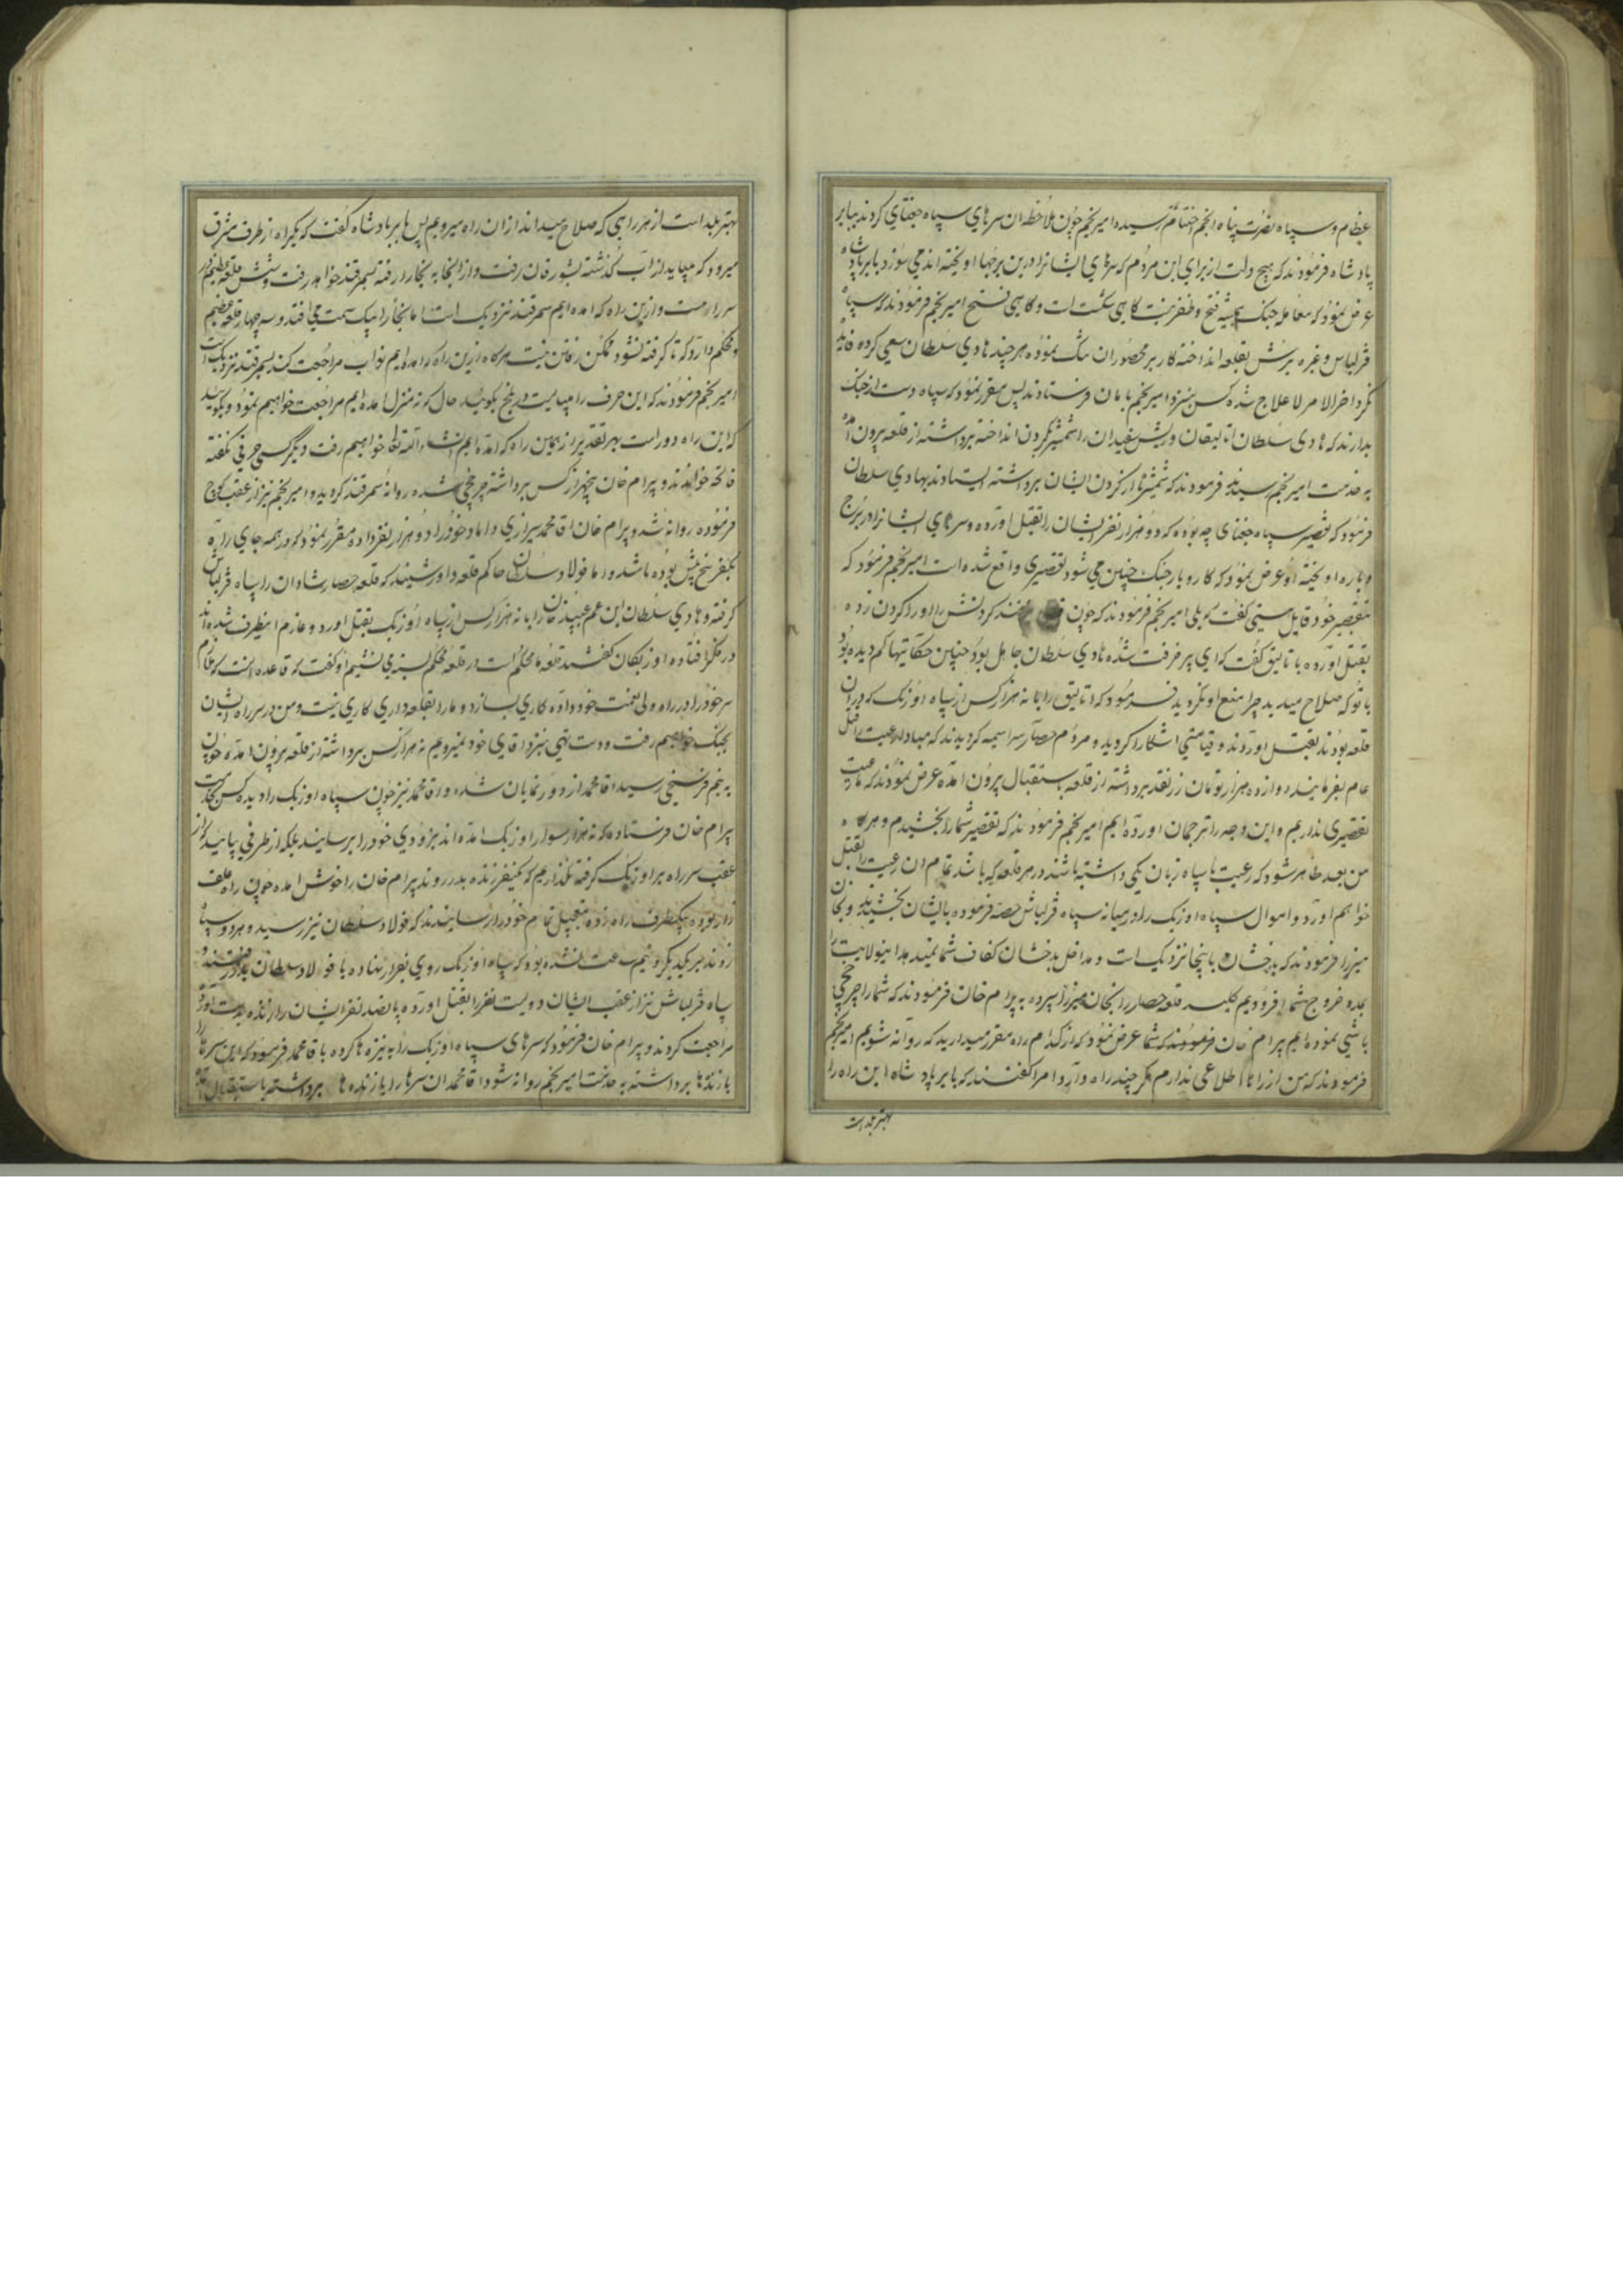 عظام و سپاه نصرت پناه انجم احتشام رسیده امیر نجم چون ملاحظه ان سرهای سپاه جغتای کردند ببابر
پادشاه فرمودند که هیچ دلت از برای این مردم که سرهای ایشانرا درین برجها اویخته اند می سوزد بابر پادشاه
عرض نمود که معامله جنک همیشه فتح و ظفر نیست کاهی شکست است و کاهی فتح امیر نجم فرمودند که سپاه
قزلباش و غیره یورش بقلعه انداخته کار بر محصوران تنک نموده هر چند هادی سلطان سعی کرده فایده
نکرد اخر الامر لاعلاج شده کس بنزد امیر نجم بامان فرستادند پس مقرر نمود که سپاه دست از جنک
بدارند که هادی سلطان اتالیقان و ریش سفیدان را شمشیر بکردن انداخته برداشته از قلعه بیرون آمده
به خدمت امیر نجم رسیدند فرمودند که شمشیرها از کردن ایشان برداشته ایستادند بهادی سلطان
فرمود که تقصیر سپاه جغتای چه بوده که دو هزار نفر ایشان را بقتل اورده و سرهای ایشانرا در برج
و باره اویخته او عرض نمود که کار و بار جنک چنین می شود تقصیری واقع شده است امیر نجم فرمود که
بتقصیر خود قایل هستی کفت بلی امیر نجم فرمودند که چون کردنش را او را کردن زده
بقتل اورده باتالیق کفت که ای پیر خرفت شده هادی سلطان جاهل بود چنین حکایتها کم دیده بود
با تو که صلاح میدید چرا منع او نکردید فرمود که اتالیق را با نه هزار کس از سپاه اوزبک که در ان
قلعه بودند بقتل اوردند و قیامتی اشکارا کردید و مردم حصار سراسیمه کردیدند که مبادا رعیت را قتل
عام بفرمایند دوازده هزار تومان زر نقد برداشته از قلعه باستقبال بیرون امده عرض نمودند که ما رعیت
تقصیری نداریم و این وجه را ترجمان اورده ایم امیر نجم فرمودند که تقصیر شما را بخشیدم و هر گاه
من بعد ظاهر شود که رعیت با سپاه زبان یکی داشته باشند در هر قلعه که باشد تمام ان رعیت را بقتل
خواهم اورد و اموال سپاه اوزبک را در میانه سپاه قزلباش حصه فرموده بایشان بخشید و بخان
میرزا فرمودند که بدخشان باینجا نزدیک است و مداخل بدخشان کفاف شما نمیدهد اینولایت را
بمدد خروج شما افزودیم کلید قلعه حصار را بخان میرزا سپرده به بیرام خان فرمودند که شما را چرخچی
باشی نموده ایم بیرام خان فرمودند که شما عرض نمود که از کدام راه مقرر میدارید که روانه شویم امیر نجم
فرمودند که من از راها اطلاعی ندارم هر چند راه دارد امرا کفتند که بابر پادشاه این راه را
بهتر بلد است
بهتر بلد است از هر راهی که صلاح میداند از ان راه میرویم پس بابر پادشاه کفت که یکراه از طرف شرق
میرود که میباید از آب کذشته بشبورقان رفت و از انجا به بخارا رفته بسمرقند خواهد رفت و شش قلعه عظیم در
سر راه است و ازین راه که امده ایم سمرقند نزدیک است اما بخارا بیک سمت می افتد و سه چهار قلعه عظیم
و محکم دارد که تا کرفته نشود ممکن رفتن نیست هر گاه ازین راه که امده ایم نواب مراجعت کند بسمرقند نزدیک است
امیر نجم فرمودند که این حرف را میبایست در بلخ بکوئید حال که نه منزل امده ایم مراجعت خواهیم نمود و بکوئید
که این راه دور است بهر تقدیر از همین راه که امده ایم انشاء الله تعالی خواهیم رفت دیگر کسی حرفی نکفته
فاتحه خواندند و بیرام خان پنجهزار کس برداشته چرخچی شده روانه سمرقند کردید و امیر نجم نیز از عقب کوچ
فرموده روانه شد و بیرام خان اقا محمد شیرازی داماد خود را دو هزار نفر داده مقرر نمود که در همه جای راه
یکفرسخ پیش بوده باشد و اما فولاد سلطان حاکم قلعه داور شنید که قلعه حصار شادمان را سپاه قزلباش
کرفته و هادی سلطان ابن عم عبید خان را با نه هزار کس از سپاه اوزبک بقتل اورد و عازم اینطرف شده اند
در فکر افتاده اوزبکان کفتند قلعه ما محکم است در قلعه محکم بسته می نشینیم او کفت که قاعده انست که غلام
سر خود را در راه ولی نعمت خود داده کاری بسازد و ما را بقلعه داری کاری نیست و من در سر راه ایشان
بجنک خواهیم رفت و دست تهی بنزد اقای خود نمیرویم نه هزار کس برداشته از قلعه بیرون امده چون
به نیم فرسخی رسید اقا محمد از دور نمایان شده و اقا محمد نیز چون سپاه اوزبک را دیده کس بخدمت
بیرام خان فرستاده که نه هزار سوار اوزبک امده اند بزودی خود را برسانید بلکه از طرفی بیائید که از
عقب سر راه بر اوزبک کرفته نکذاریم که یکنفر زنده بدر روند بیرام خان را خوش امده چون راه علف
زار بوده بیکطرف راه زده بتعجیل تمام خود را رسانیدند که فولاد سلطان نیز رسید و هر دو سپاه
زدند بر یکدیکر و نیم ساعت نشده بود که سپاه اوزبک روی بفرار نهاده با فولاد سلطان بدر رفتند و
سپاه قزلباش نیز از عقب ایشان دویست نفر را بقتل اورده پانصد نفر ایشان را زنده بدست اورده
مراجعت کردند و بیرام خان فرمود که سرهای سپاه اوزبک را به نیزه ها کرده باقا محمد فرمود که این سرها را
با زنده ها برداشته به خدمت امیر نجم روانه شود اقا محمد ان سرها را با زنده ها برداشته باستقبال